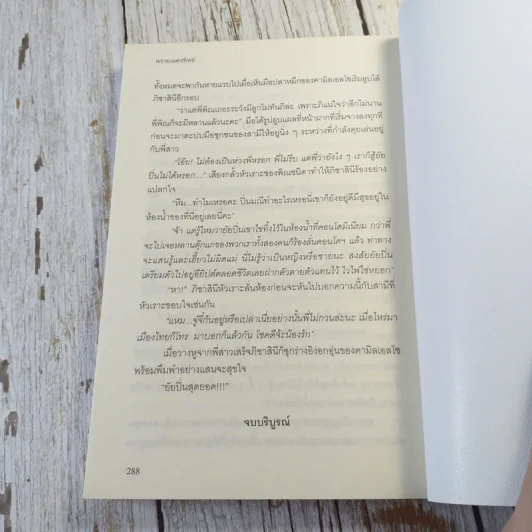 พรายเนตรทิพย์
ทั้งหมดจะพากันหายแวบไปเมื่อเห็นมือปลาหมึกของคามิลเอลโซเริ่มลูบไล้
ภิชาสินีอีกรอบ
"ว่าแต่พี่พิณเถอะระวังมีลูกไม่ทันภิล่ะ เพราะภิแน่ใจว่าอีกไม่นาน
พี่พิณก็จะมีหลานแล้วนะคะ" มือได้รูปลูบแผลที่หน้าผากที่เริ่มจางลงทุกที
ก่อนจะมาตะปบมือซุกซนของสามีให้อยู่นิ่ง ๆ ระหว่างที่กำลังคุยเล่นอยู่
กับพี่สาว
"โอ๊ย! ไม่ต้องเป็นห่วงพี่หรอก พี่ไม่รีบ แต่พี่ว่ายังไง ๆ เราก็สู้ยัย
ปิ่นไม่ได้หรอก..." เสียงกลั้วหัวเราะของพิณชนิดาทำให้ภิชาสินีร้องอย่าง
แปลกใจ
"หืม...ทำไมเหรอคะ ปิ่นมณีทำอะไรเหรอนี่เขาก็ยังอยู่ดีมีสุขอยู่ใน
ห้องน้ำของที่นี่อยู่เลยนี่คะ"
"จ้า แต่รู้ไหมว่ายัยปิ่นเขาใช่ทิ้งไว้ในห้องน้ำที่คอนโดมิเนียม กว่าพี่
จะไปเจอหลานตุ๊กแกของพวกเราทั้งสองคนก็ร้องลั่นคอนโดฯ แล้ว ท่าทาง
จะแสนรู้และเฮี้ยวไม่มีดแม่ นี่ไม่รู้ว่าเป็นหญิงหรือชายนะ สงสัยยัยปิ่น
เตรียมตัวไปอยู่อียิปต์ตลอดชีวิตเลยฝากตัวตายตัวแทนไว้ ไวไฟใช่หยอก"
"หา!" ภิชาสินีหัวเราะลั่นห้องก่อนจะหันไปบอกความนี้กับสามีที่
หัวเราะชอบใจเช่นกัน
"แหม...จู๋จี๋กันอยู่หรือเปล่าเนี่ยอย่างนั้นพี่ไม่กวนล่ะนะ เมื่อไหร่มา
เมืองไทยก็โทร. มาบอกก็แล้วกัน โชคดีจ้ะน้องรัก"
เมื่อวางหูจากพี่สาวเสร็จภิชาสินีก็ซุกร่างอิงอกอุ่นของคามิลเอลโซ
พร้อมพึมพำอย่างแสนจะสุขใจ
"ยัยปิ่นสุดยอด!!!"
จบบริบูรณ์
288